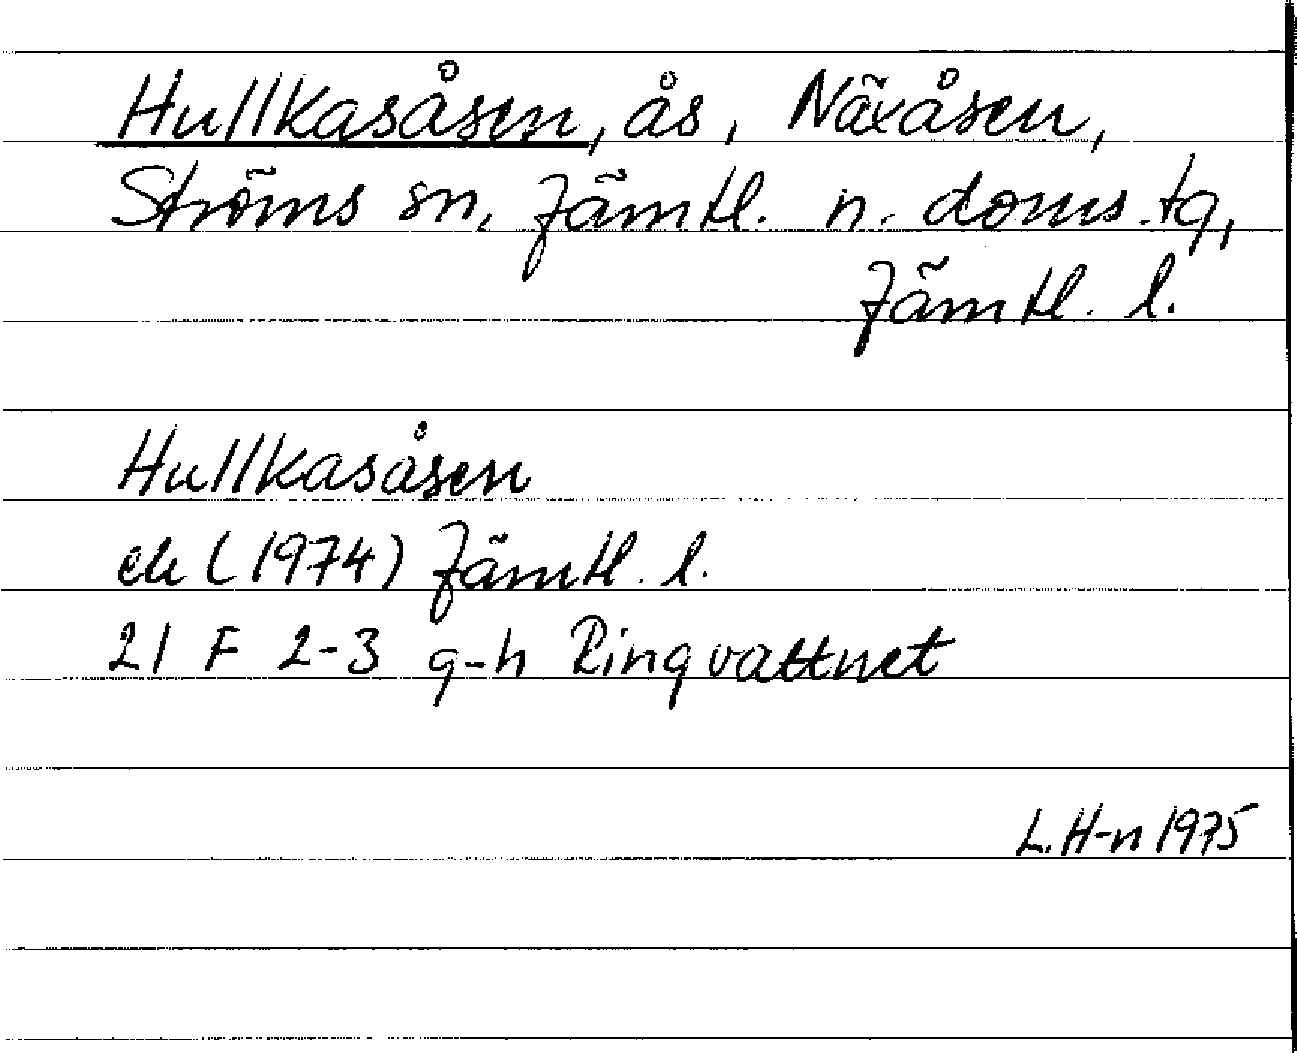 Hullkasåsen, ås, Näxåsen,
Ströms sn, Jämtl. n. doms. tg,
Jämtl. l.
Hullkasåsen
ek (1974) Jämtl. l.
21 F 2-3 g-h Ringvattnet
L. H-n 1975